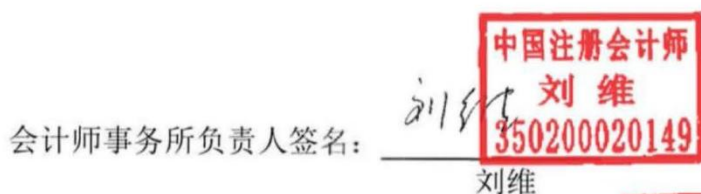 中国注册会计师
刘维
350200020149
会计师事务所负责人签名：刘维
刘维